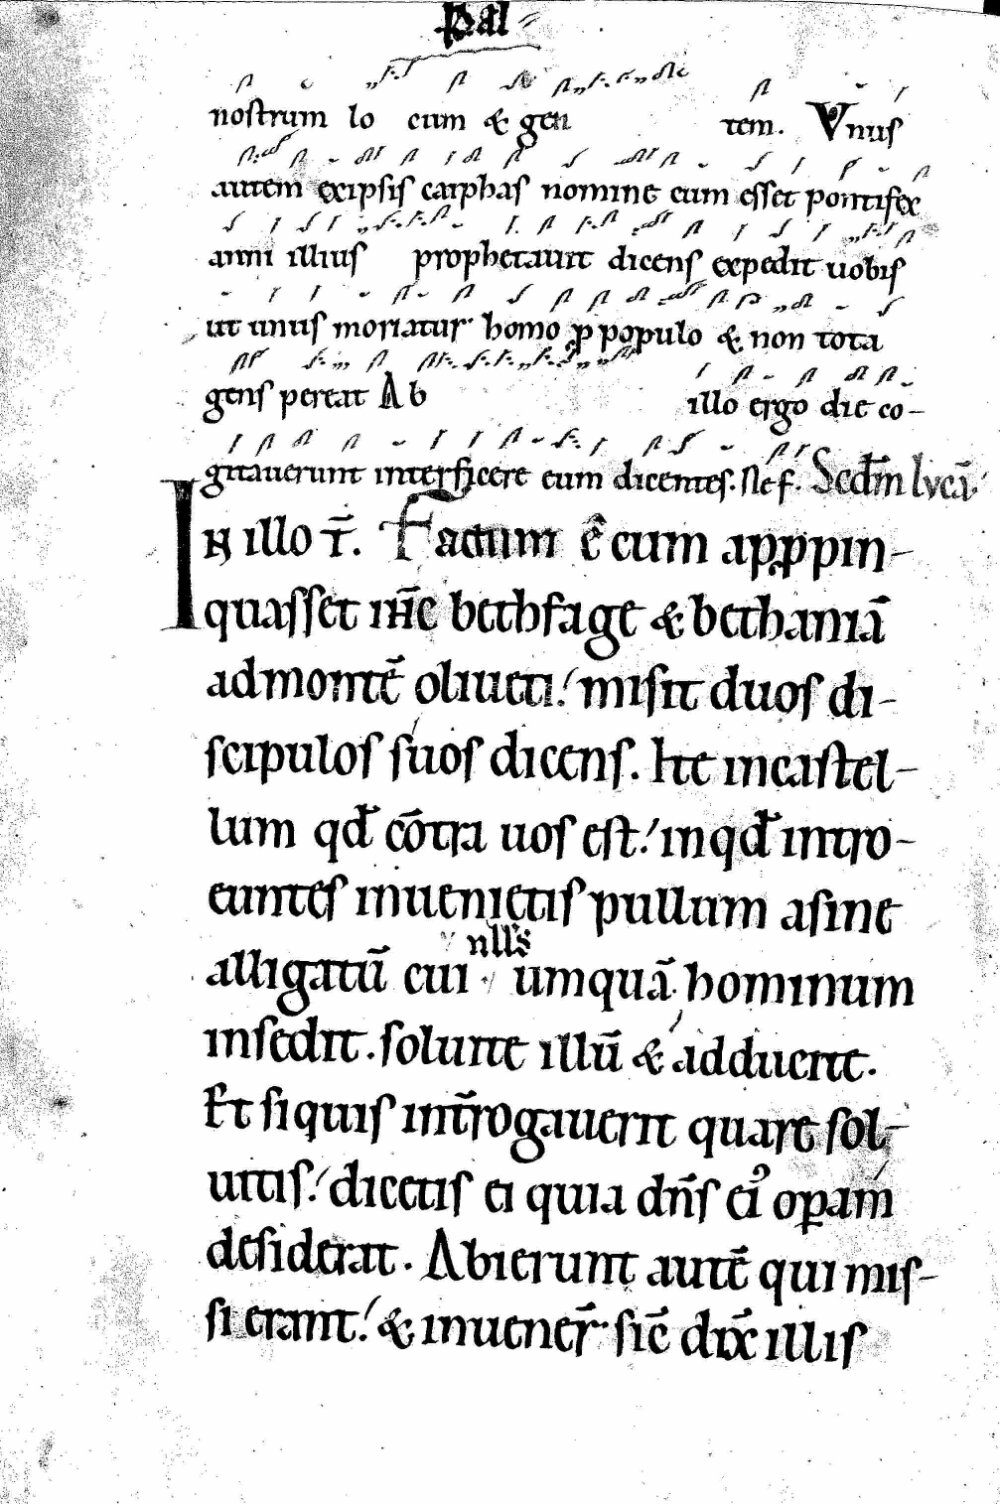 Pal
nostrum lo cum & gen tem. Vnus
autem exipsis caiphas nomine cum esset pontifex
anni illius prophetauit dicens expedit uobis
ut unus moriatur homo ꝓ populo & non tota
gens pereat Ab illo ergo die co-
gitauerunt interficere eum dicentes. Secdm lvcā.
In illo t̄. Factum ē cum apꝓpin-
quasset ih̄c bethfage & bethaniā
admontē oliueti! misit duos di-
scipulos suos dicens. Ite incastel-
lum qd̄ cōtra uos est! inqd̄ intro-
euntes inuenietis pullum asine
alligatū cui nll's umquā hominum
insedit. soluite illū & adducite.
Et siquis int̄rogauerit quare sol-
uitis! dicetis ei quia dn̄s ei' opam
desiderat. Abierunt autē qui mis-
si erant! & inuener̄ sic̄ dix̄ illis